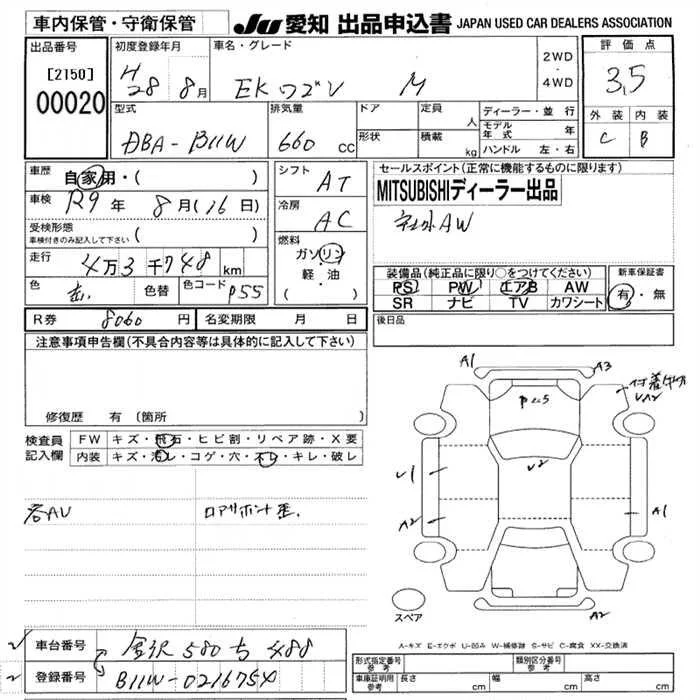 車内保管・守衛保管
JU 愛知 出品申込書 JAPAN USED CAR DEALERS ASSOCIATION
出品番号
[2150]
00020
初度登録年月
H28 8月
車名・グレード
EKワゴン M
2WD
・
4WD
評価点
3.5
外装 内装
C B
型式
DBA-B11W
排気量
660 CC
ドア
形状
定員 人
積載 kg
ディーラー・並行
モデル年式 年
ハンドル 左・右
車歴 自家用・( )
車検 R9年 8月(16日)
受検形態
車検付きのみ記入して下さい ( )
走行 4万3千748km
色 色替 色コード P55
シフト AT
冷房 AC
燃料
ガソリン
・
軽・油
( )
セールスポイント(正常に機能するものに限ります)
MITSUBISHIディーラー出品
社外AW
装備品(純正品に限り○をつけてください)
PS PW エアB AW
SR ナビ TV カワシート
新車保証書
有・無
R券 8060円
名変期限 月 日
後日品
注意事項申告欄(不具合内容等は具体的に記入して下さい)
修復歴 有 (箇所
検査員記入欄
FW キズ・飛石・ヒビ割・リペア跡・X要
内装 キズ・汚レ・コゲ・穴・スレ・キレ・破レ
各AU
ロアサポート
A1
A3
U2
U1
A2
A1
A2
スペア
A-キズ E-エクボ U-凹み W-補修跡 S-サビ C-腐食 XX-交換済
車台番号 金沢 580 ち 488
登録番号 B11W-0216754
形式指定番号 参考
類別区分番号 参考
車庫証明用 参考 長さ cm 幅 cm 高さ cm